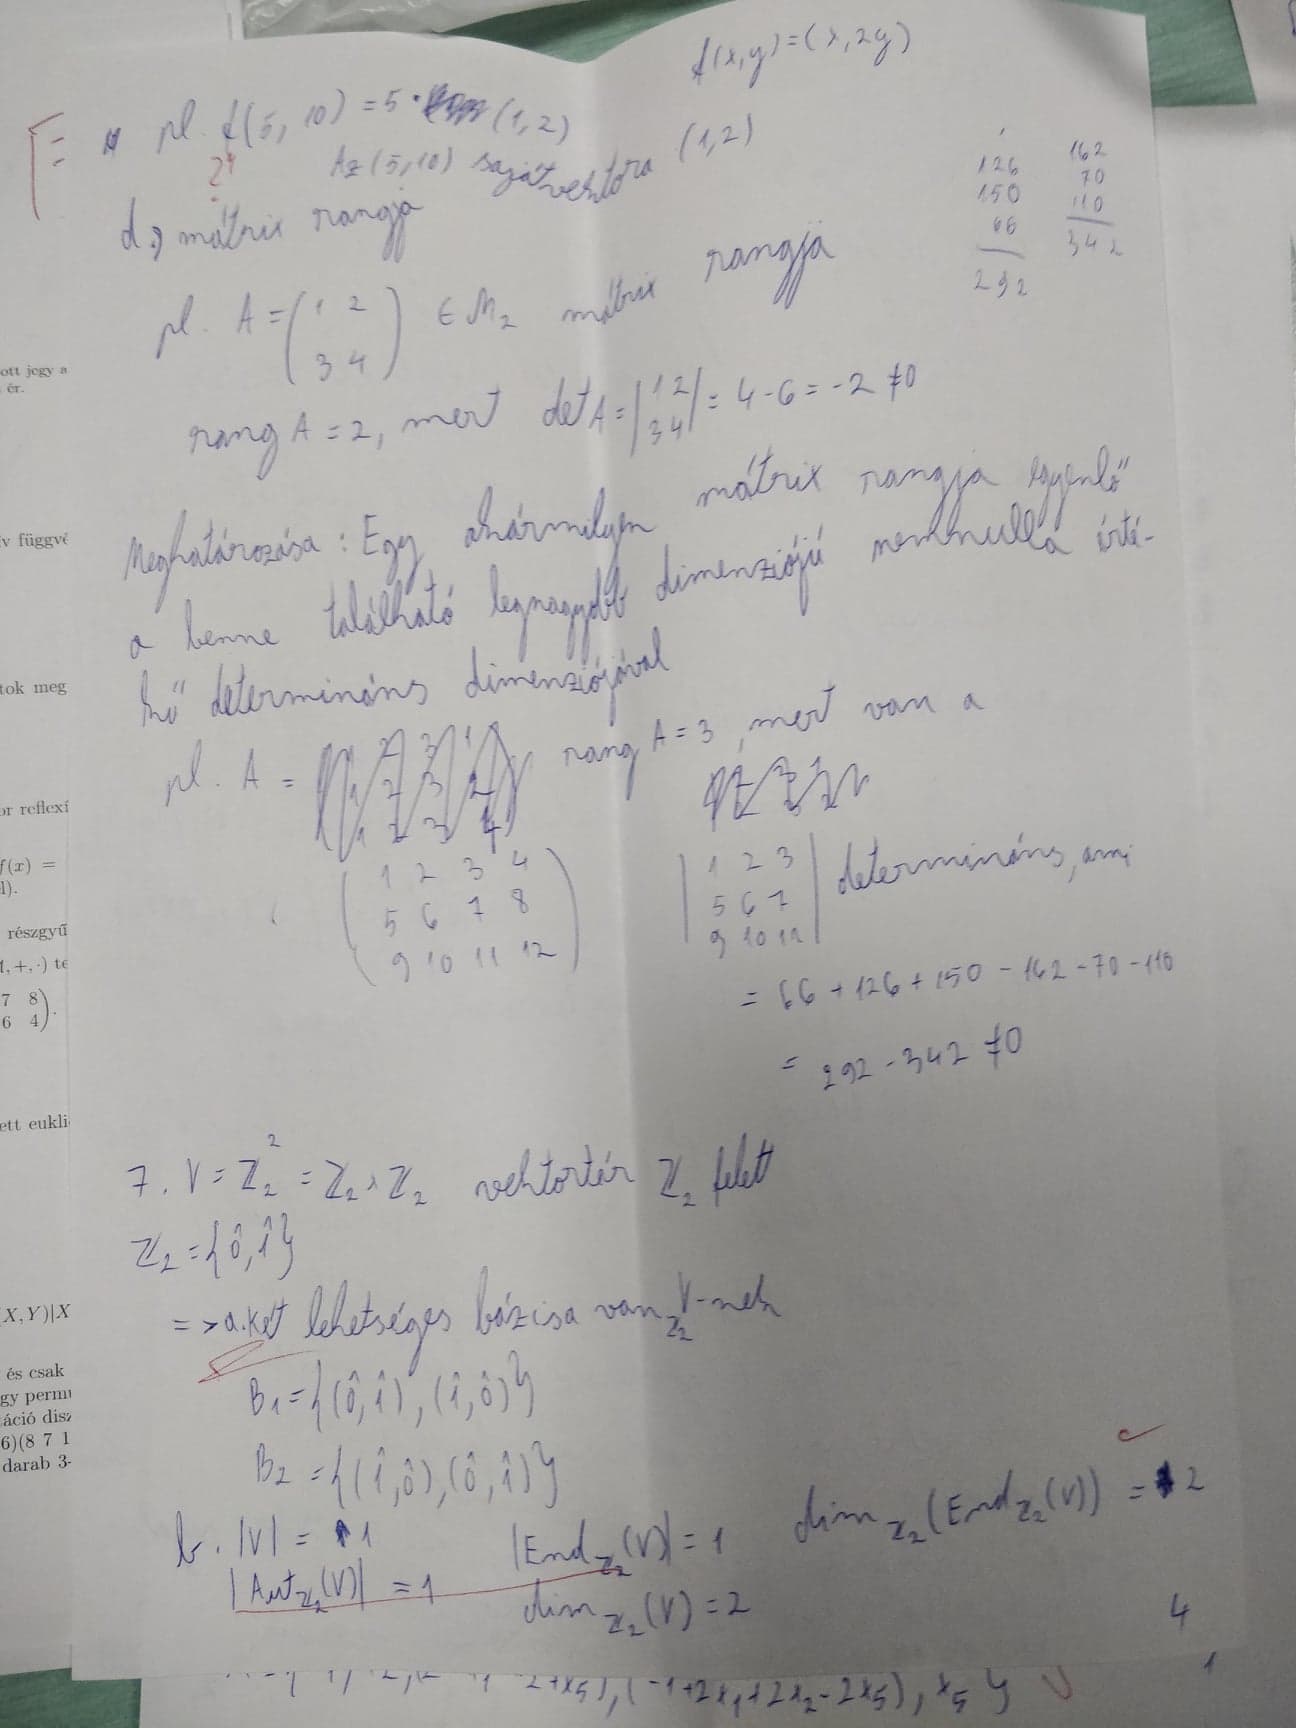 f(x,y)=(x,2y)
pl. f(5, 10) = 5 · (1,2)
Az (5,10) sajátvektora (1,2)
2?
d.) mátrix rangja
126
150
66
292
162
70
110
342
pl. A = ( 1 2 ) ∈ M₂ mátrix rangja
3 4
rang A = 2, mert det A = | 1 2 | = 4 - 6 = -2 ≠ 0
3 4
Meghatározása : Egy akármilyen mátrix rangja egyenlő
a benne található legnagyobb dimenziójú nemnulla érté-
kű determináns dimenziójával
pl. A = rang A = 3, mert van a
( 1 2 3 4 )
5 6 7 8
9 10 11 12
| 1 2 3 | determináns, ami
5 6 7
9 10 11
= 66 + 126 + 150 - 162 - 70 - 110
= 292 - 342 ≠ 0
7. V = ℤ₂² = ℤ₂ × ℤ₂ vektortér ℤ₂ felett
ℤ₂ = {0̂, 1̂}
=> a. két lehetséges bázisa van ℤ₂V-nek
B₁ = {(0̂, 1̂), (1̂, 0̂)}
B₂ = {(1̂, 0̂), (0̂, 1̂)}
b. |V| = 1 |End ℤ₂(V)| = 1 dim ℤ₂(End ℤ₂(V)) = 2
|Aut ℤ₂(V)| = 1 dim ℤ₂(V) = 2
4
1
2+x₅), (-1+2x₁+2x₂-2x₅), x₅}
ott jegy a
ér.
v függvé
tok meg
or reflexí
f(x) =
l).
részgyű
1, +, ·) te
7 8
6 4).
ett eukli
X, Y)|X
és csak
gy permu
áció disz
6)(8 7 1
darab 3-